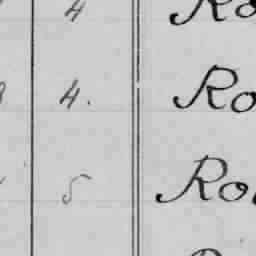 4 Ro
4. Ro
5 Ro